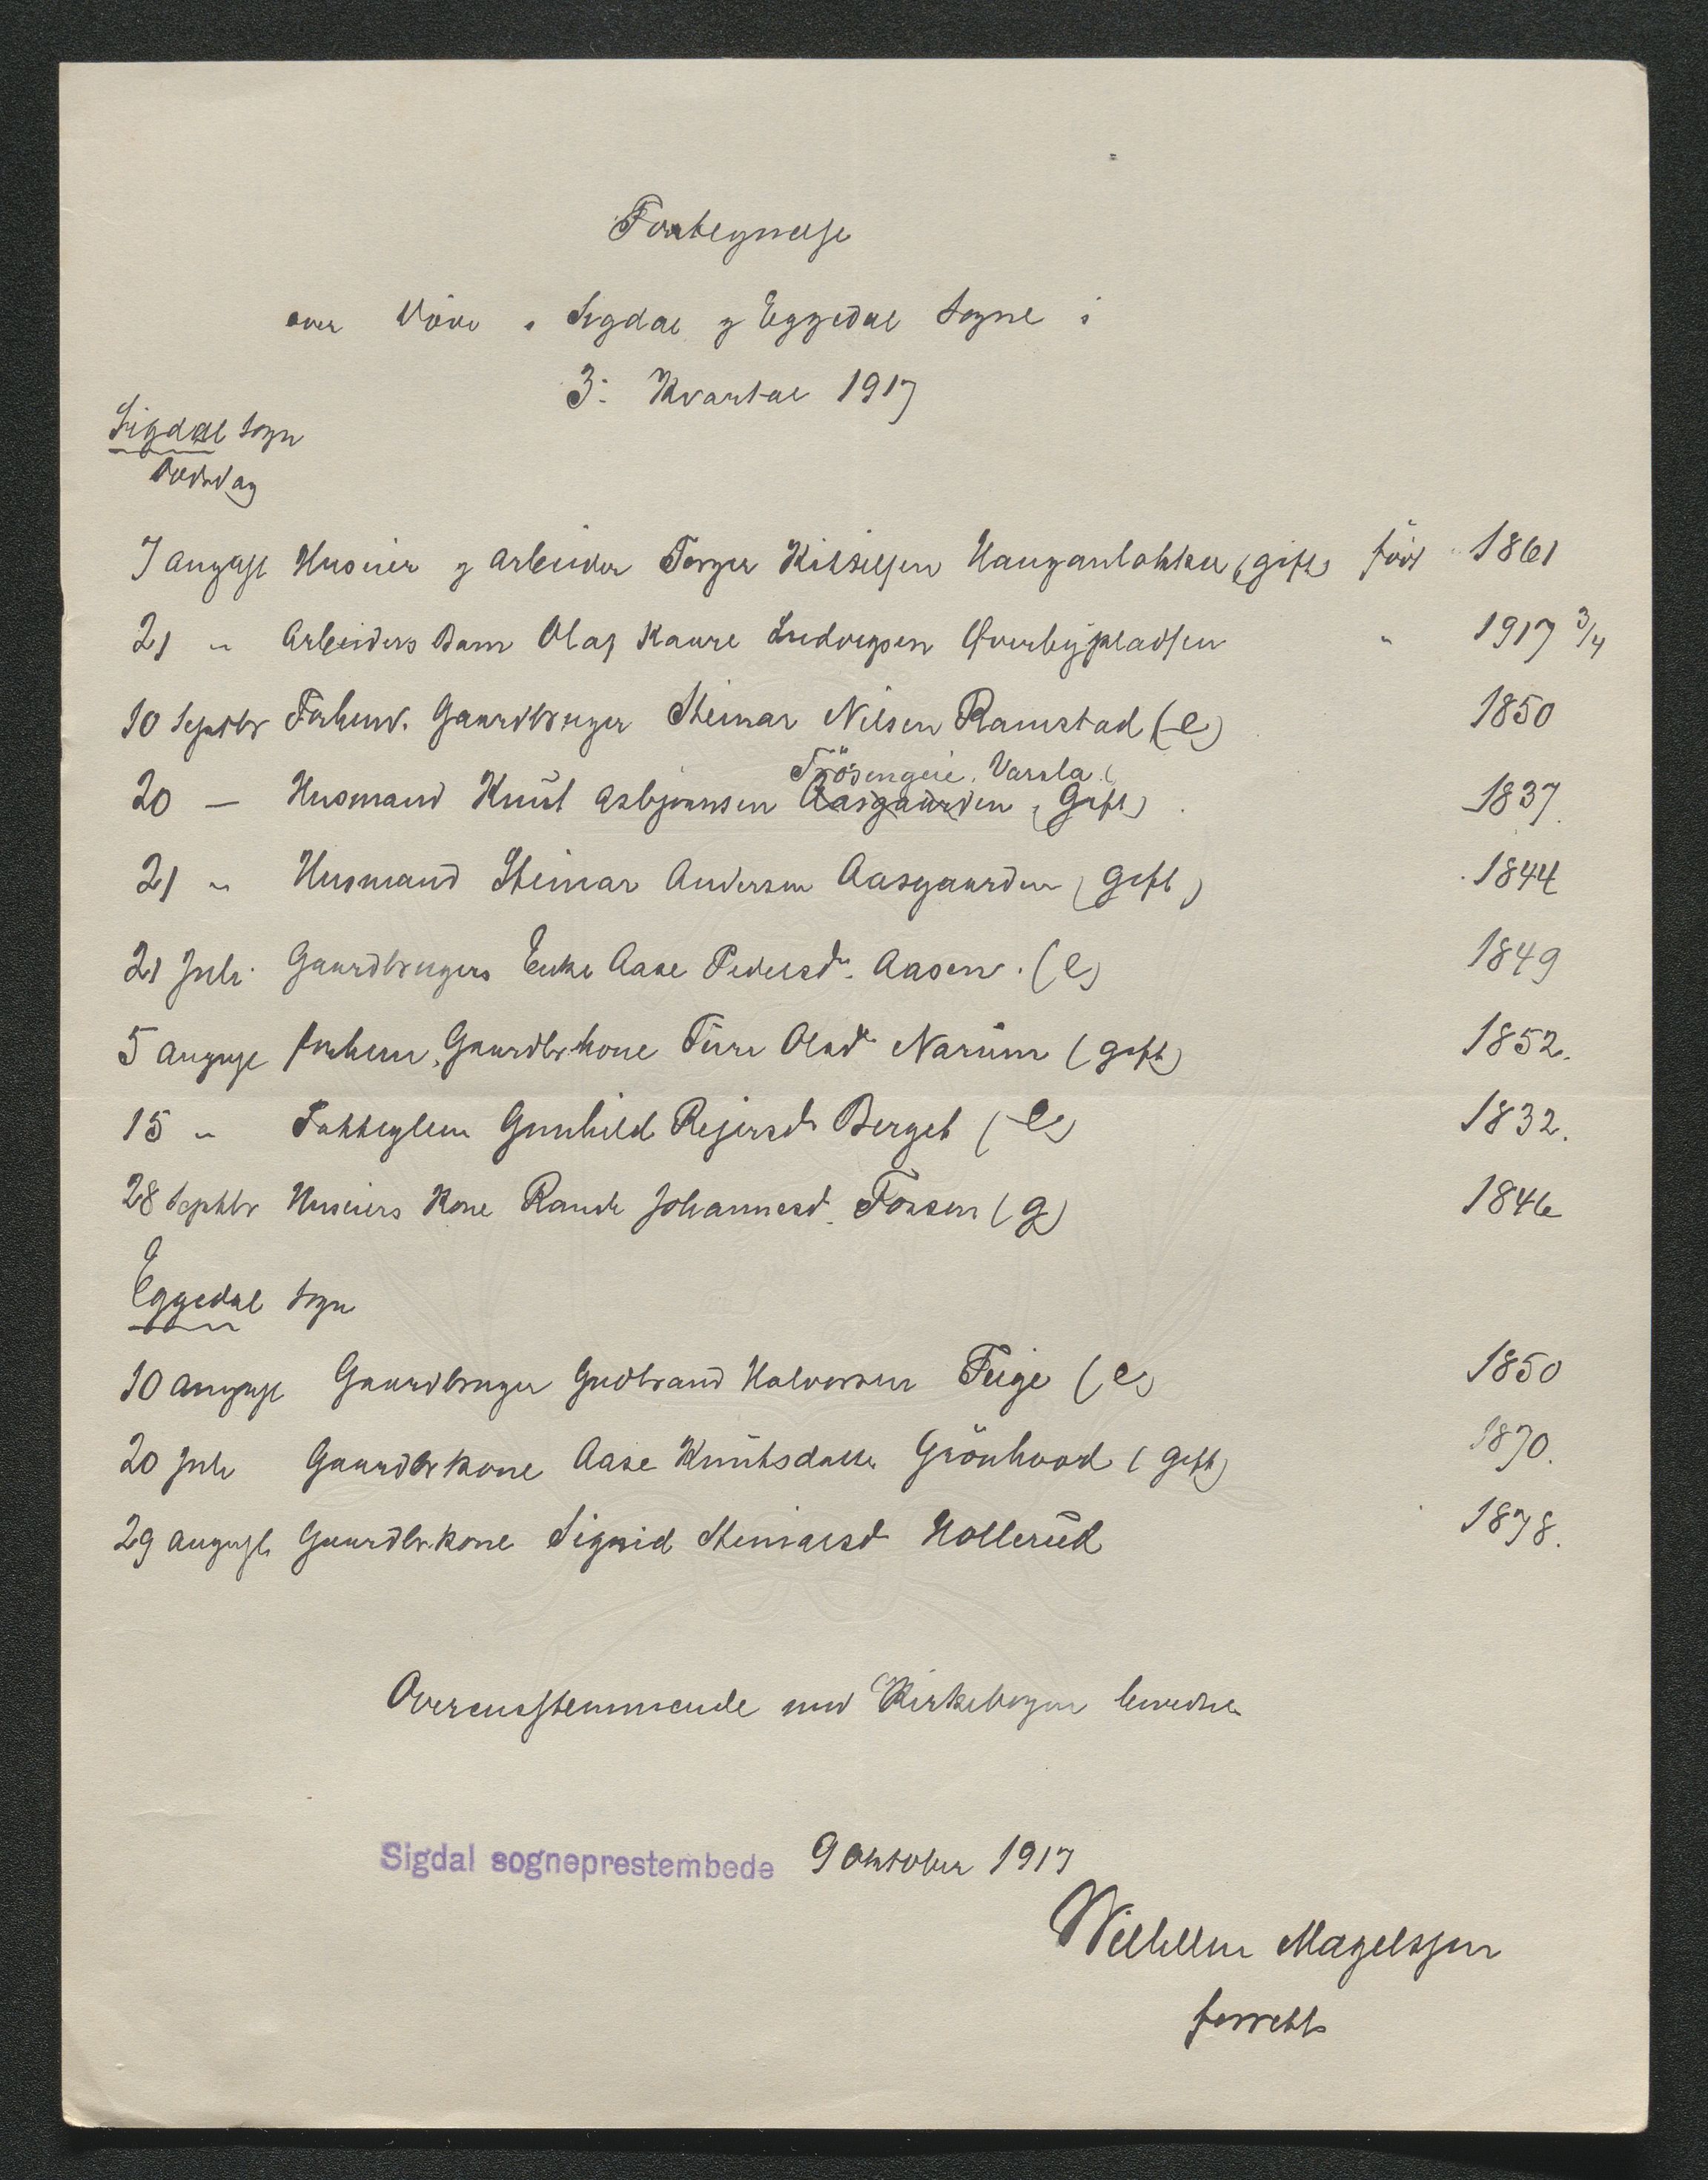 Fortegnelse
over Döde i Sigdal og Eggedal Sogne i
3: Kvartal 1917
Sigdal Sogn
Dödsdag
7 August Huseier og Arbeider Torger Kittilsen Haugan (gift) född 1861
21 " Arbeiders Barn Olaf Kaare Ludvigsen Överbypladsen " 1917 3/4
10 Septbr Forhenv. Gaardbruger Steinar Nilsen Ramstad (e) 1850
Trösengeie. Varala
20 — Husmand Knut Asbjörnsen Aasgaarden (Gift) 1837.
21 " Husmand Steinar Andersen Aasgaarden (Gift) 1844
21 Juli Gaardbrugers Enke Aase Pedersdr. Aasen. (e) 1849
5 August forhenv. Gaardbr.kone Turi Olsdr Narum (gift) 1852.
15 " Fattiglem Gunhild Rejersdr Berget (e) 1832.
28 Septbr Huseiers Kone Randi Johannesd. Fossen (g) 1846
Eggedal Sogn
10 August Gaardbruger Gudbrand Halvorsen Teige (e) 1850
20 Juli Gaardbrkone Aase Knutsdatter Grönhovd (gift) 1870.
29 August Gaardbr.kone Sigrid Steinarsd Hollerud 1878.
Overensstemmende med Kirkebogen bevidnes
Sigdal sogneprestembede 9 Oktober 1917
Wilhelm Magelssen